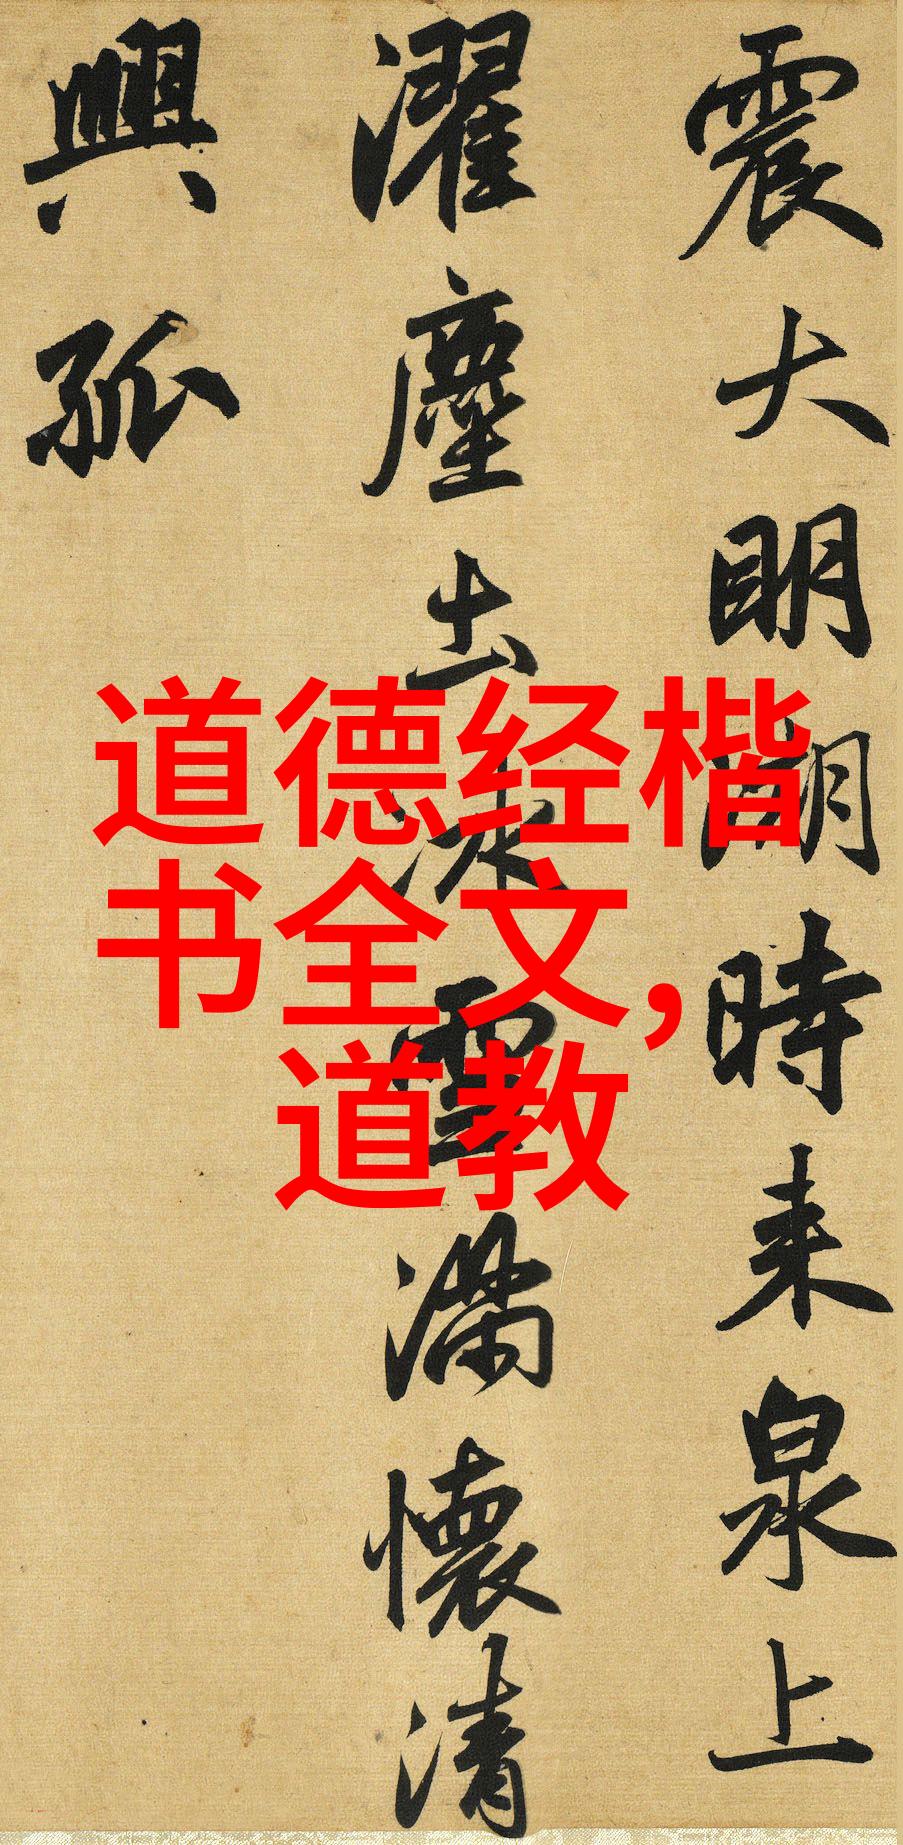 震大明湖時来泉上
濯塵土冰雪滿懷清
興孤
道德经楷
书全文，
道教